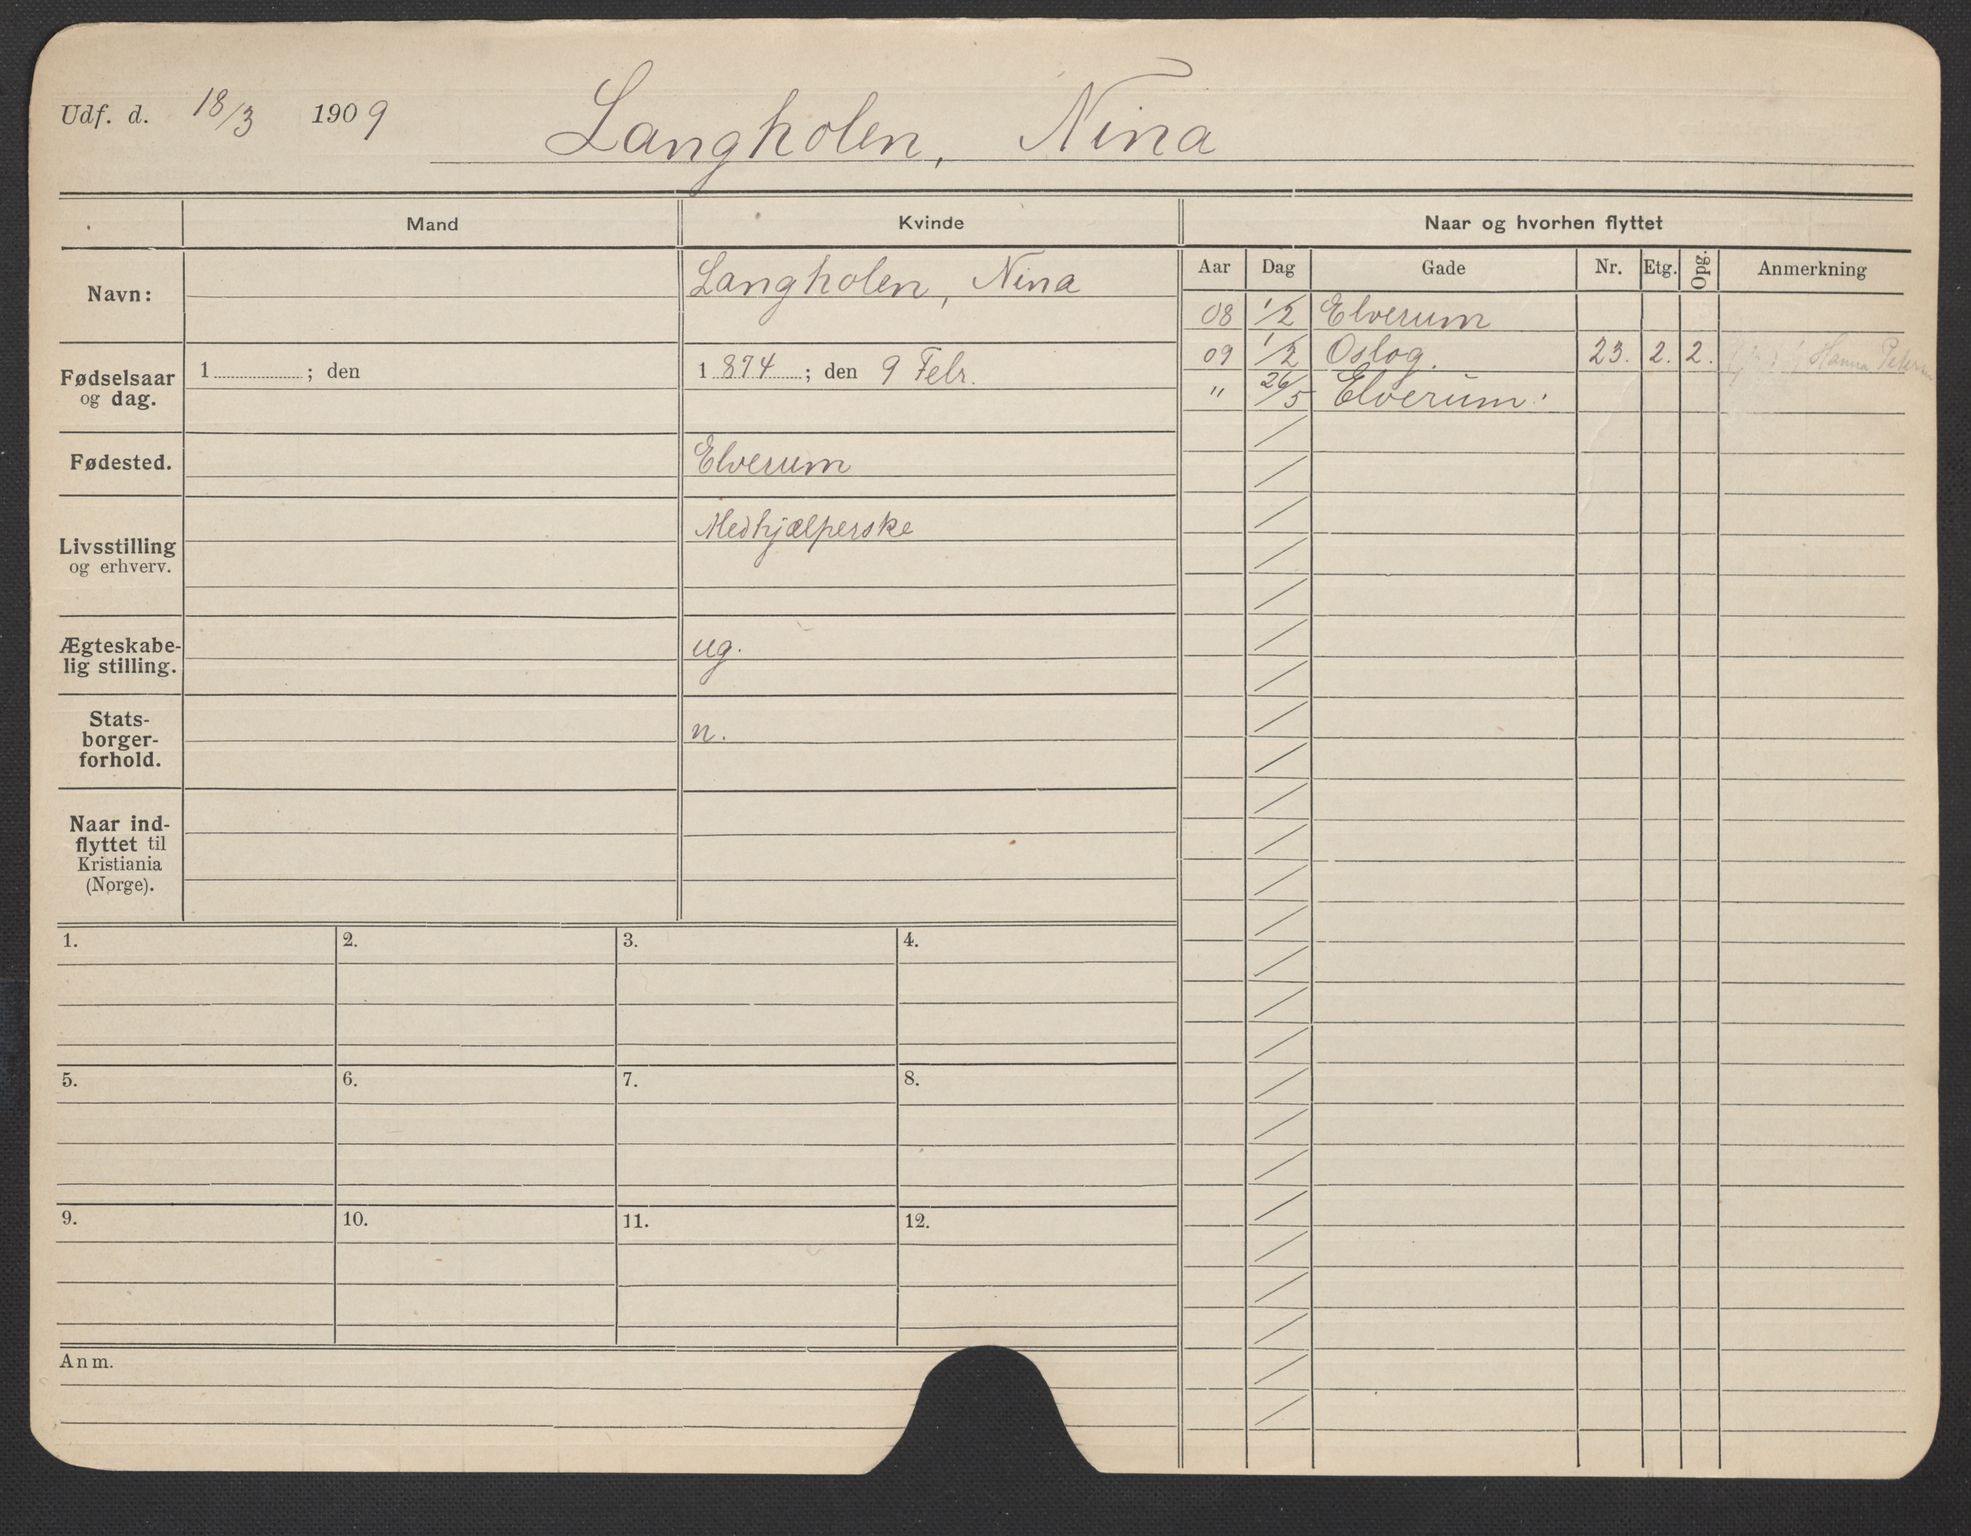 Udf. d. 18/3 1909 Langholen, Nina
Mand Kvinde Naar og hvorhen flyttet
Aar Dag Gade Nr. Etg. Opg. Anmerkning
Navn: Langholen, Nina
08 1/2 Elverum
09 1/2 Oslog. 23. 2. 2. Hanna
" 26/5 Elverum.
Fødselsaar
og dag.
1 ; den 1 874 ; den 9 Febr.
Fødested. Elverum
Livsstilling
og erhverv.
Medhjælperske
Ægteskabe-
lig stilling.
ug.
Stats-
borger-
forhold.
n.
Naar ind-
flyttet til
Kristiania
(Norge).
1. 2. 3. 4.
5. 6. 7. 8.
9. 10. 11. 12.
Anm.